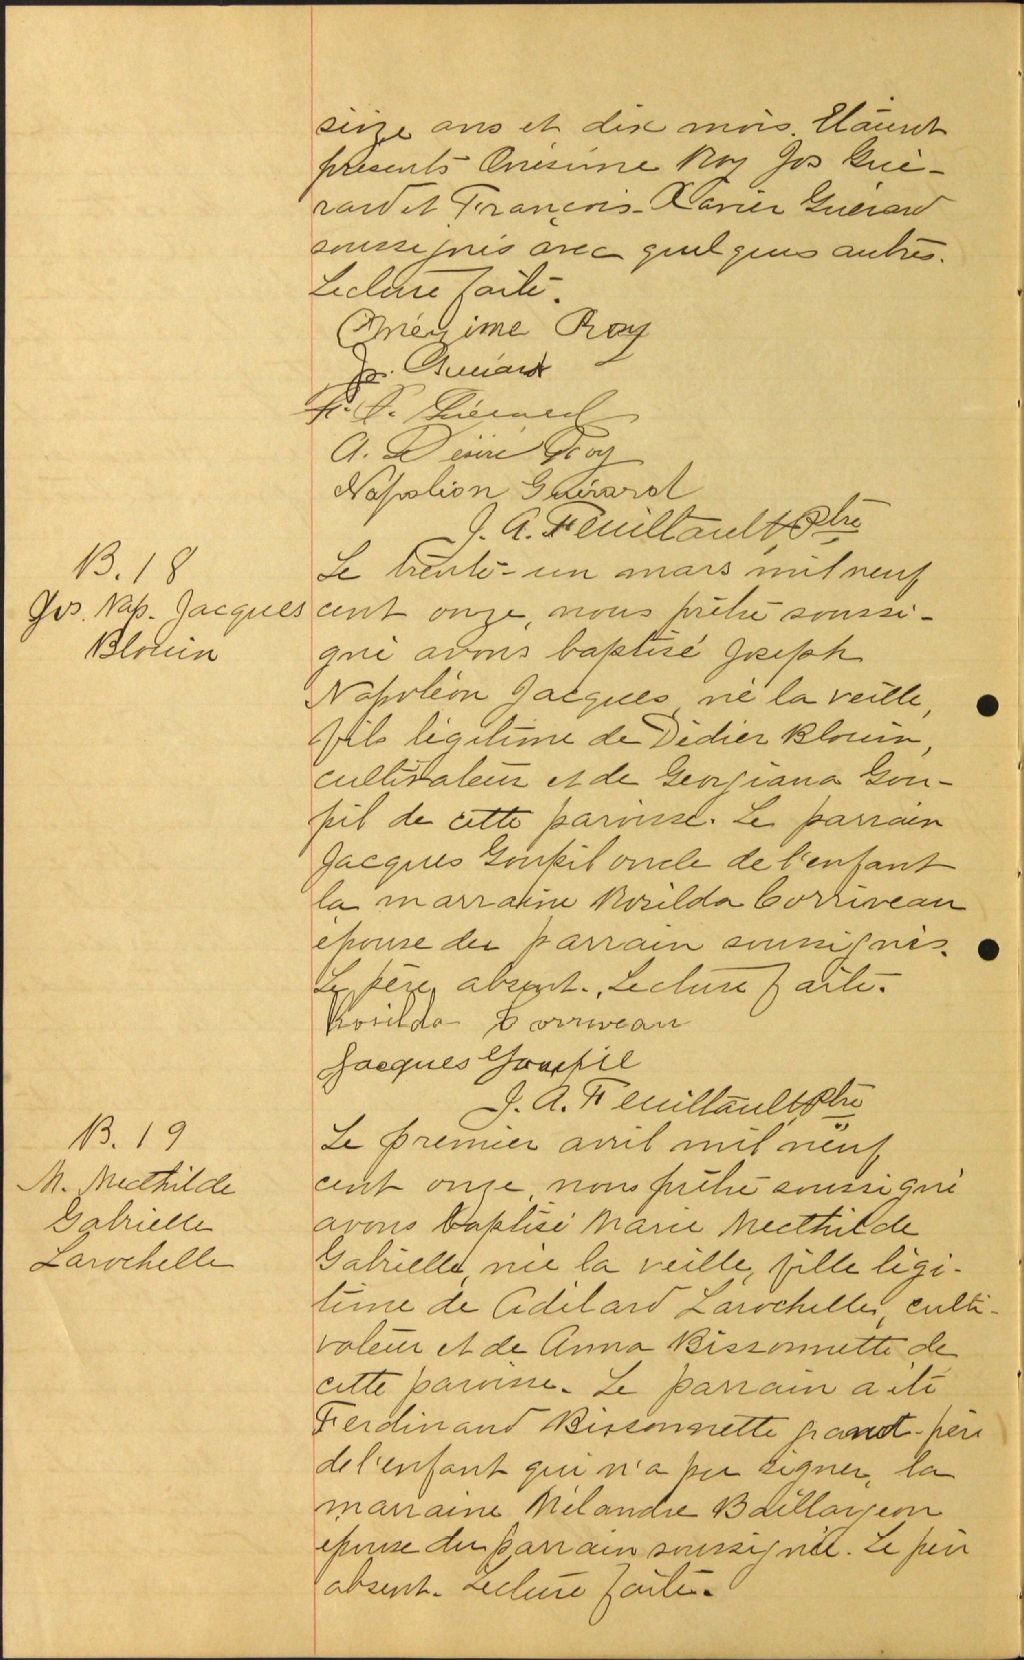 seize ans et dix mois. Etaient
présents Onésime Roy Jos Gué-
rard et François-Xavier Guérard
soussignés avec quelques autres.
Lecture faite.
Onézime Roy
Jos. Guérard
F. X. Guérard
A. Désiré Roy
Napoléon Guérard
J. A. Feuiltault, Ptre
B. 18
Jos. Nap. Jacques
Blouin
Le trente-un mars mil neuf
cent onze, nous prêtre soussi-
gné avons baptisé Joseph
Napoléon Jacques, né la veille,
fils légitime de Dédier Blouin,
cultivateur et de Georgiana Gou-
pil de cette paroisse. Le parrain
Jacques Goupil oncle de l'enfant
la marraine Rosilda Corriveau
épouse du parrain soussignés.
Le père absent. Lecture faite.
Rosilda Corriveau
Jacques Goupil
J. A. Feuiltault, Ptre
B. 19
M. Mecthilde
Gabrielle
Larochelle
Le premier avril mil neuf
cent onze, nous prêtre soussigné
avons baptisé Marie Mecthilde
Gabrielle, née la veille, fille légi-
time de Adélard Larochelle, culti-
vateur et de Anna Bissonnette de
cette paroisse. Le parrain a été
Ferdinand Bissonnette grand-père
de l'enfant qui n'a pu signer, la
marraine Mélandre Baillargeon
épouse du parrain soussignée. Le père
absent. Lecture faite.